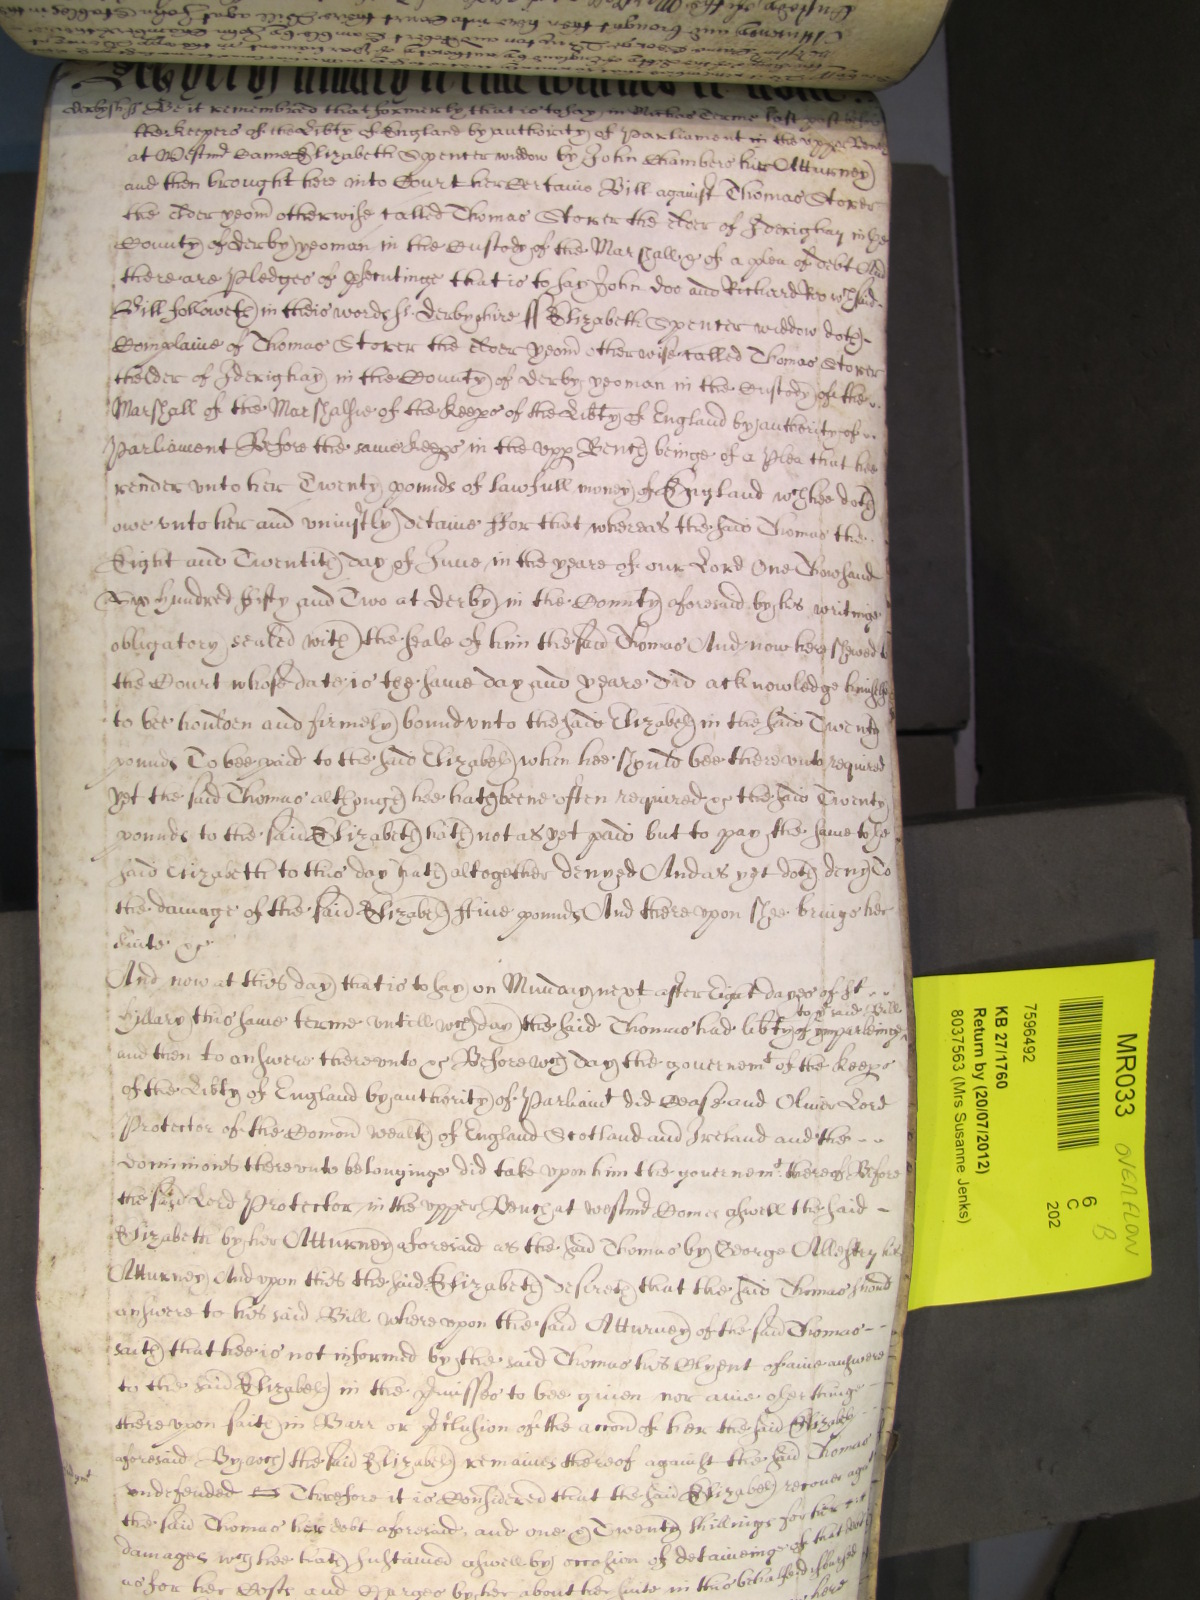 Derbyshire ss Be it remembred that formerly that is to say in Michas Terme last past before
the keepers of the Libty of England by authority of Parliament in the upper Bench
at Westmr Came Elizabeth Spencer widdow by John Chambers her Atturney
and then brought here into Court her Certaine Bill against Thomas Storer
the elder yeom otherwise called Thomas Storer the elder of Iderighay in the
County of Derby yeoman in the Custody of the Marshall &c of a plea of debt And
there are Pledges of psecutinge that is to say John Doo and Richard Roo wch said
Bill followeth in theis words ss Derbyshire ss Elizabeth Spencer widdow doth
Complaine of Thomas Storer the elder yeom otherwise called Thomas Storer
thelder of Iderighay in the County of Derby yeoman in the Custody of the
Marshall of the Marshalsie of the keeps of the Libty of England by authority of
Parliament Before the same keeps in the upp Bench beinge of a Plea that hee
render unto her Twenty pounds of lawfull money of England wch hee doth
owe unto her and uniustly detaine ffor that whereas the said Thomas the
Eight and Twentith day of June in the yeare of our Lord One Thowsand
Six hundred Fifty and Two at Derby in the County aforesaid by his writinge
obligatory sealed with the seale of him the said Thomas And now here shewed to
the Court whose date is the same day and yeare did acknowledge himselfe
to bee houlden and firmely bound unto the said Elizabeth in the said Twenty
pounds To bee paid to the said Elizabeth when hee should bee thereunto required
yet the said Thomas although hee hath beene often required &c the said Twenty
pounds to the said Elizabeth hath not as yet paid but to pay the same to the
said Elizabeth to this day hath altogether denyed And as yet doth deny To
the damage of the said Elizabeth ffive pounds And thereupon shee brings her
suite &c
And now at this day that is to say on Munday next after Eight dayes of St
to ye said Bill
Hillary this same terme untill wch day the said Thomas had libty of imparleinge
and then to answere thereunto &c Before wch day the governemt of the keeps
of the Libty of England by authority of Parliamt did Cease and Oliver Lord
Protector of the Comon wealth of England Scotland and Ireland and the
dominions thereunto belonginge did take upon him the governemt thereof Before
the said Lord Protector in the upper Bench at Westmr Comes aswell the said
Elizabeth by her Atturney aforesaid as the said Thomas by George Allestry his
Atturney And upon this the said Elizabeth desireth that the said Thomas should
answere to his said Bill whereupon the said Atturney of the said Thomas
saith that hee is not informed by the said Thomas his Clyent of anie answere
to the said Elizabeth in the Pmisses to bee given nor anie other thinge
thereupon saith in Barr or Pclusion of the accon of her the said Elizabeth
aforesaid By wch the said Elizabeth remaines thereof against the said Thomas
undefended Therefore it is Considered that the said Elizabeth recover agt
the said Thomas her debt aforesaid and one & Twenty shillings for her
damages wch hee hath sustained aswell by occasion of detaineinge of that debt
as for her Costs and Charges by her about her suite in this behalfe
MR033 OVERFLOW
B
6
C
202
7596492
KB 27/1760
Return by (20/07/2012)
8037563 (Mrs Susanne Jenks)